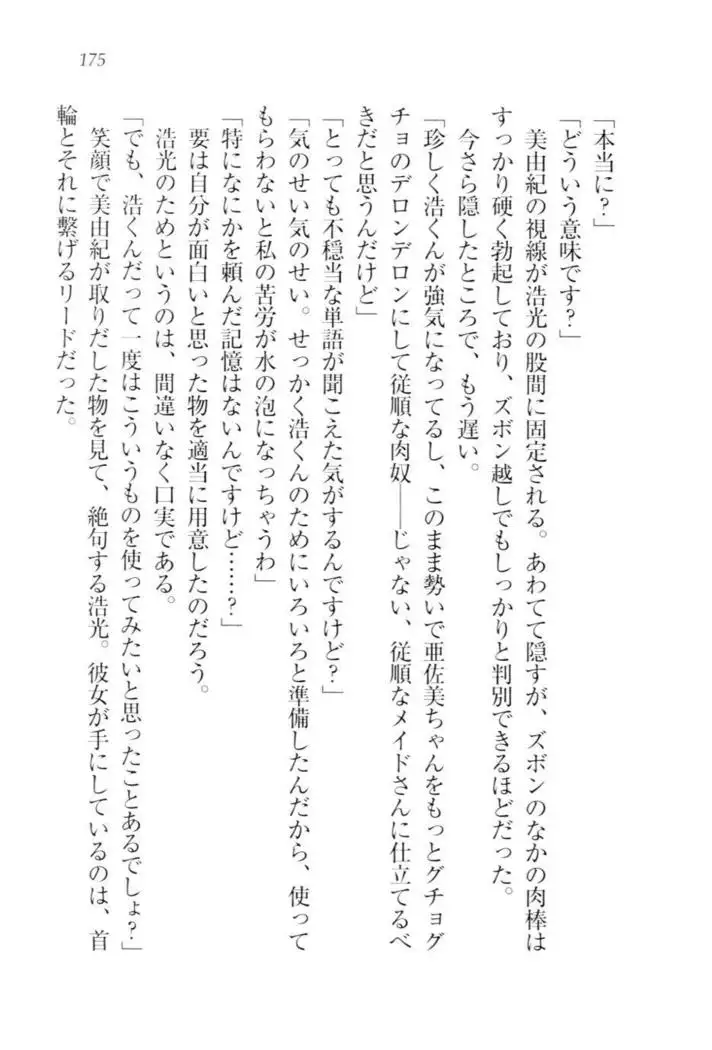 175
「本当に？」
「どういう意味です？」
　美由紀の視線が浩光の股間に固定される。あわてて隠すが、ズボンのなかの肉棒は
すっかり硬く勃起しており、ズボン越しでもしっかりと判別できるほどだった。
　今さら隠したところで、もう遅い。
「珍しく浩くんが強気になってるし、このまま勢いで亜佐美ちゃんをもっとグチョグ
チョのデロンデロンにして従順な肉奴――じゃない、従順なメイドさんに仕立てるべ
きだと思うんだけど」
「とっても不穏当な単語が聞こえた気がするんですけど？」
「気のせい気のせい。せっかく浩くんのためにいろいろと準備したんだから、使って
もらわないと私の苦労が水の泡になっちゃうわ」
「特になにかを頼んだ記憶はないんですけど……？」
　要は自分が面白いと思った物を適当に用意したのだろう。
　浩光のためというのは、間違いなく口実である。
「でも、浩くんだって一度はこういうものを使ってみたいと思ったことあるでしょ？」
　笑顔で美由紀が取りだした物を見て、絶句する浩光。彼女が手にしているのは、首
輪とそれに繋げるリードだった。